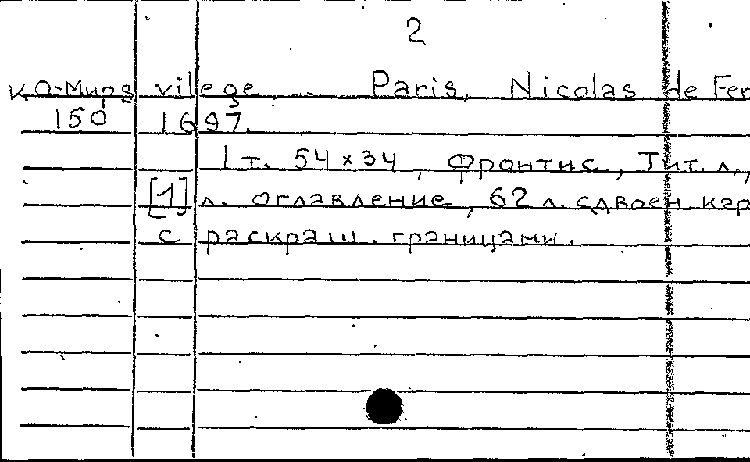 2
К.О-Мира vilege. Paris, Nicolas de Fer
150 1697.
1 т. 54 x 34, фронтис., Тит. л.,
[1] л. оглавление, 62 л. сдвоен кар
с раскраш. границами.